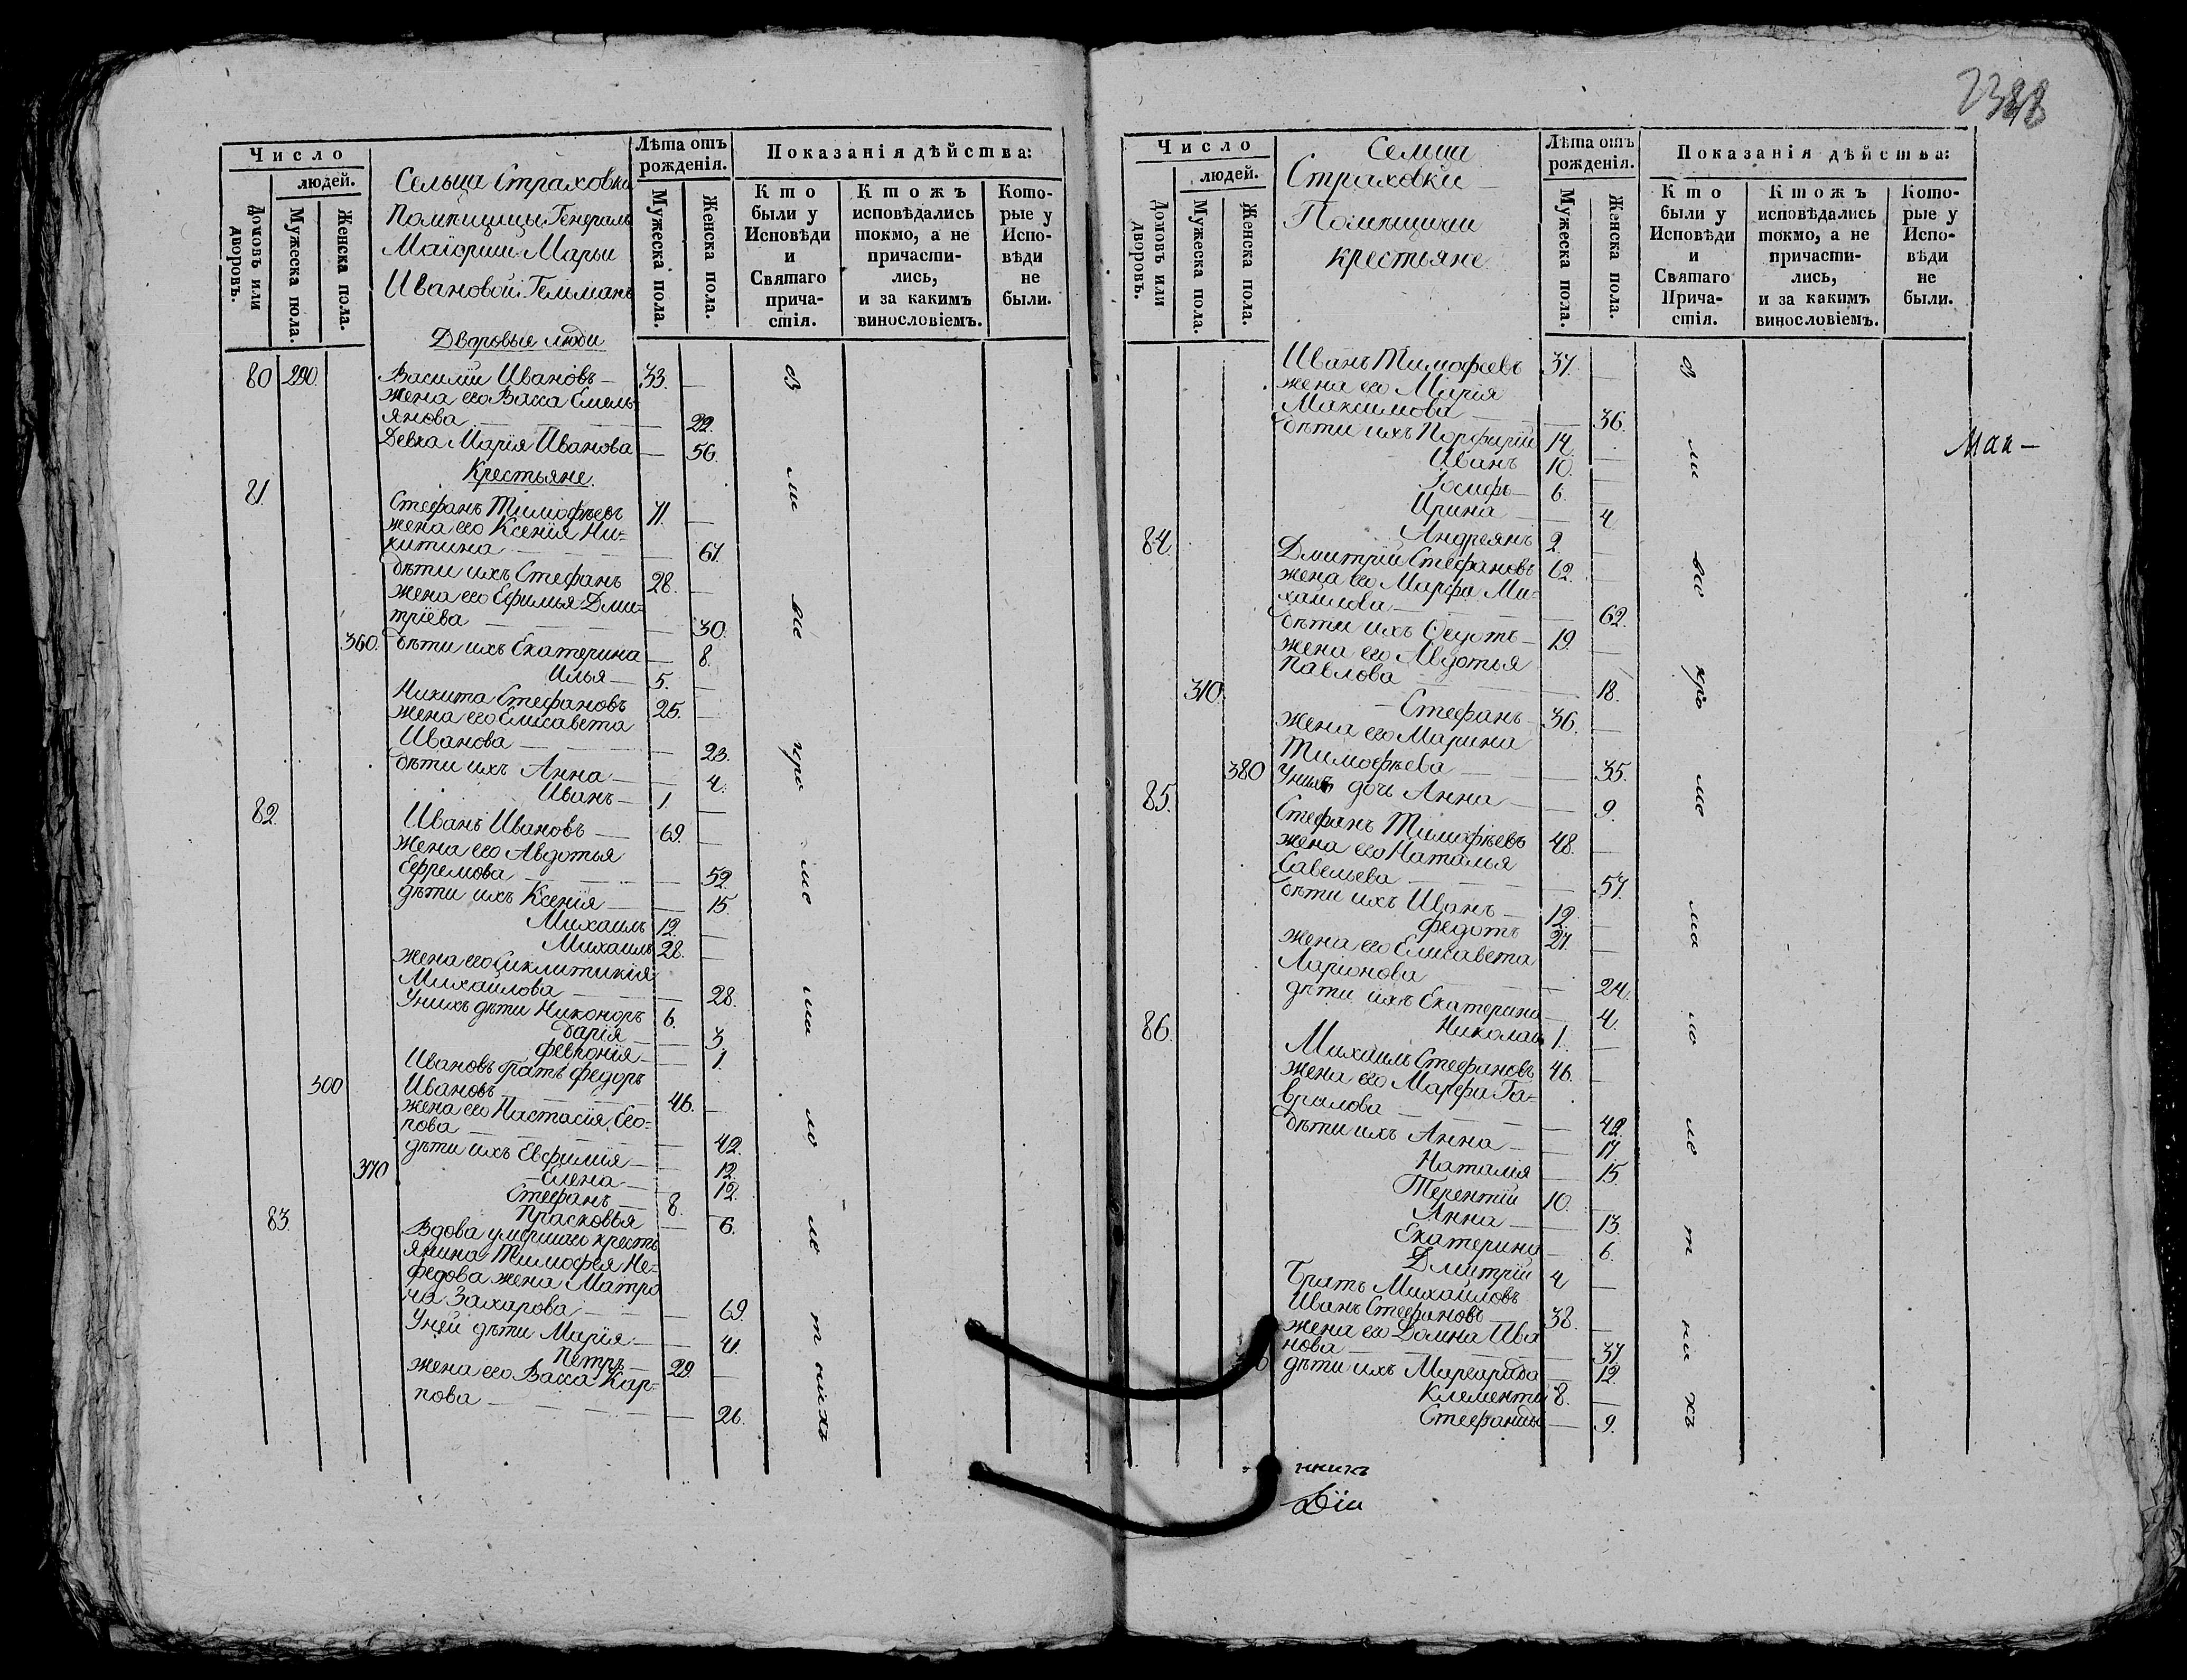 Число
людей.
Домовъ или дворовъ.
Мужеска пола.
Женска пола.
Сельца Страховки
Помѣщицы Генералъ
Маіорши Марьи
Ивановой Гельманъ
Лѣта отъ рожденія.
Мужеска пола.
Женска пола.
Показанія дѣйства:
Кто были у Исповѣди и Святаго прича-стія.
Ктожъ исповѣдались токмо, а не причасти-лись, и за какимъ винословіемъ.
Кото-рые у Испо-вѣди не были.
Дворовые люди
80 290. Василій Ивановъ — 33. —
жена его Васса Емель-
янова — 22.
Девка Марія Иванова — 56.
Крестьяне.
81.
Стефанъ Тимофѣевъ 71. —
жена его Ксенія Ни-
китина — 61.
дѣти ихъ Стефанъ 28. —
жена его Ефимья Дми-
тріева — 30.
360. дѣти ихъ Екатерина — 8.
Илья — 5. —
Никита Стефановъ 25. —
жена его Елисавета
Иванова — 23.
дѣти ихъ Анна — 4.
Иванъ — 1. —
82.
Иванъ Ивановъ — 69. —
жена его Авдотья
Ефремова — 52.
дѣти ихъ Ксенія — 15.
Михаилъ 12. —
Михаилъ 28. —
жена его Сиклитикія
Михаилова — 28.
Унихъ дѣти Никоноръ 6.
Дарія — 3.
Февронія — 1.
Ивановъ братъ Федоръ
300 Ивановъ — 46. —
жена его Настасія Его-
рова — 42.
дѣти ихъ Евфимія — 12.
370 Елена — 12.
Стефанъ — 8.
Прасковья — 6.
83.
Вдова умершаго кресть
янина Тимофея Не-
федова жена Матро
на Захарова — 69.
Уней дѣти Марія — 41.
Петръ — 29. —
жена его Васса Кар-
пова — 26.
в ли все кро ме ма ло ле т нихъ
Число
людей.
Домовъ или дворовъ.
Мужеска пола.
Женска пола.
Сельца
Страховки
Помѣщичьи
крестьяне
Лѣта отъ рожденія.
Мужеска пола.
Женска пола.
Показанія дѣйства:
Кто были у Исповѣди и Святаго Прича-стія.
Ктожъ исповѣдались токмо, а не причасти-лись, и за какимъ винословіемъ.
Кото-рые у Испо-вѣди не были.
Иванъ Тимофеевъ 37. —
жена его Марія
Максимова — 36.
дѣти ихъ Порфирій 14. —
Иванъ 10. —
Іосифъ — 6. —
Ирина — 4
Андреянъ 2. —
84.
Дмитрій Стефановъ 62. —
жена его Марфа Ми-
хаилова — 62.
дѣти ихъ Федотъ — 19. —
жена его Авдотья
Павлова — 18.
310. — Стефанъ — 36. —
жена его Марина
Тимофѣева — 35.
380 Унихъ дочь Анна — 9.
85.
Стефанъ Тимофѣевъ 48. —
жена его Наталья
Савельева — 57.
дѣти ихъ Иванъ — 12. —
Федотъ 27. —
жена его Елисавета
Ларіонова — 24.
дѣти ихъ Екатерина — 4.
Николай 1. —
86.
Михаилъ Стефановъ 46. —
жена его Марфа Га-
врилова — 42.
дѣти ихъ Анна — 17
Наталія — 15.
Терентій 10. —
Анна — 13.
Екатерина — 6.
Дмитрій 4 —
Братъ Михаиловъ
Иванъ Стефановъ — 38. —
жена его Домна Ива
нова — 37
дѣти ихъ Маргарада — 12.
Клементи 8. —
Стефанида — 9.